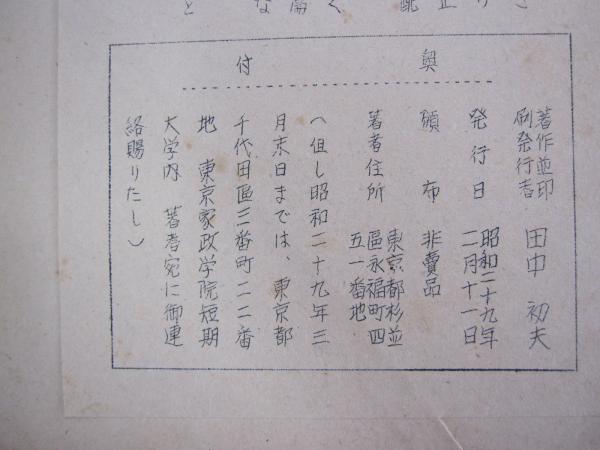 奥付
著作並印
刷発行者 田中 初夫
発行日 昭和二十九年
二月十一日
頒布 非賣品
著者住所 東京都杉並
區永福町四
五一番地
(但し昭和二十九年三
月末日までは、東京都
千代田區三番町二二番
地 東京家政学院短期
大学内 著者宛に御連
絡賜りたし)